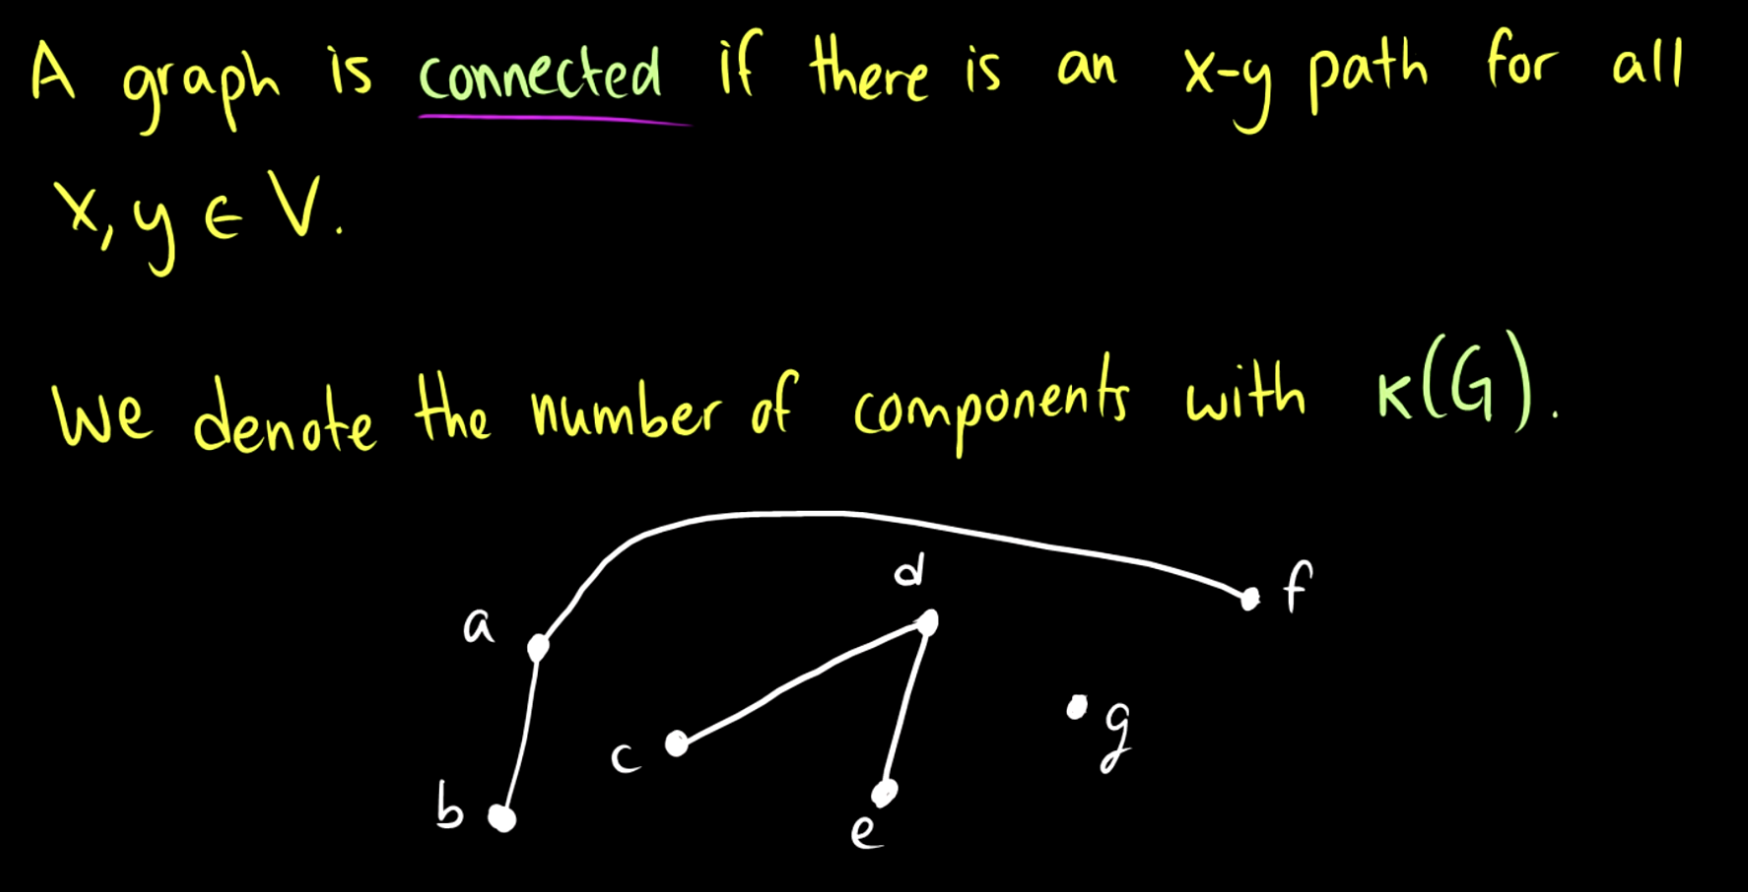 A graph is connected if there is an x-y path for all
x, y ∈ V.
We denote the number of components with κ(G).
d
f
a
g
c
b
e